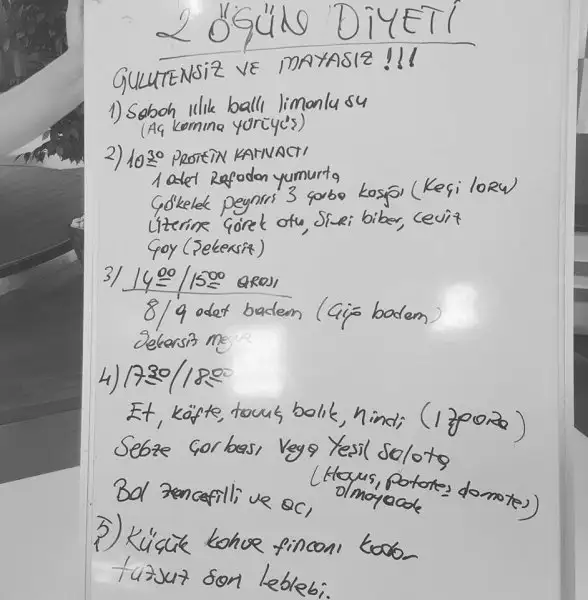 2 ÖĞÜN DİYETİ
GULUTENSİZ VE MAYASIZ !!!
1) Sabah ılık ballı limonlu su
(Aç karnına yürüyüş)
2) 10 30 PROTEİN KAHVALTI
1 adet Rafadan yumurta
Çökelek peyniri 3 çorba kaşığı (Keçi loru)
Üzerine Çörek otu, Sivri biber, ceviz
Çay (Şekersiz)
3) 14 00 / 15 00 arası
8/9 adet badem (Çiğ badem)
Şekersiz
4) 17 30 / 18 00
Et, köfte, tavuk, balık, hindi (1 porsi)
Sebze Çorbası Veya Yeşil Salata
(Havuç, patates, domates)
olmayacak
Bol zencefilli ve acı
5) Küçük kahve fincanı kadar
tuzsuz sarı leblebi.